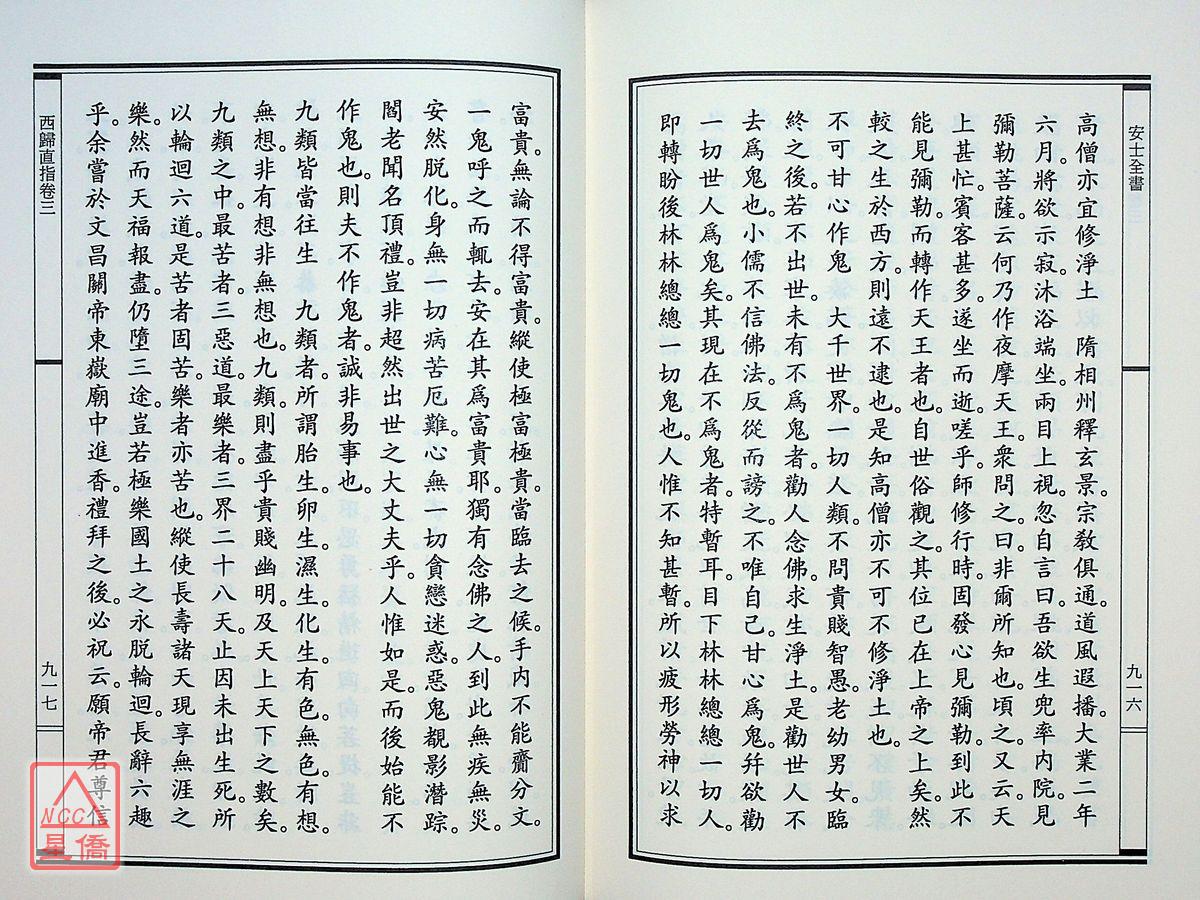 安士全書
九一六
高僧亦宜修淨土 隋相州釋玄景。宗教俱通。道風遐播。大業二年
六月。將欲示寂。沐浴端坐。兩目上視。忽自言曰。吾欲生兜率內院。見
彌勒菩薩。云何乃作夜摩天王。眾問之。曰。非爾所知也。頃之。又云。天
上甚忙。賓客甚多。遂坐而逝。嗟乎。師修行時。固發心見彌勒。到此不
能見彌勒。而轉作天王者也。自世俗觀之。其位已在上帝之上矣。然
較之生於西方。則遠不逮也。是知高僧亦不可不修淨土也。
不可甘心作鬼 大千世界。一切人類。不問貴賤智愚。老幼男女。臨
終之後。若不出世。未有不爲鬼者。勸人念佛。求生淨土。是勸世人不
去爲鬼也。小儒不信佛法。反從而謗之。不唯自己。甘心爲鬼。幷欲勸
一切世人爲鬼矣。其現在不爲鬼者。特暫耳。目下林林總總一切人。
即轉盼後林林總總一切鬼也。人惟不知甚暫。所以疲形勞神以求
富貴。無論不得富貴。縱使極富極貴。當臨去之候。手內不能齎分文。
一鬼呼之而輒去。安在其爲富貴耶。獨有念佛之人。到此無疾無災。
安然脱化。身無一切病苦厄難。心無一切貪戀迷惑。惡鬼覩影潛踪。
閻老聞名頂禮。豈非超然出世之大丈夫乎。人惟如是。而後始能不
作鬼也。則夫不作鬼者。誠非易事也。
九類皆當往生 九類者。所謂胎生。卵生。濕生。化生。有色。無色。有想。
無想。非有想非無想也。九類則盡乎貴賤幽明。及天上天下之數矣。
九類之中。最苦者。三惡道。最樂者。三界二十八天。止因未出生死。所
以輪迴六道。是苦者固苦。樂者亦苦也。縱使長壽諸天。現享無涯之
樂。然而天福報盡。仍墮三途。豈若極樂國土之永脱輪迴。長辭六趣
乎。余嘗於文昌關帝東嶽廟中進香。禮拜之後。必祝云。願帝君尊信
西歸直指卷三
九一七
NCC
星僑